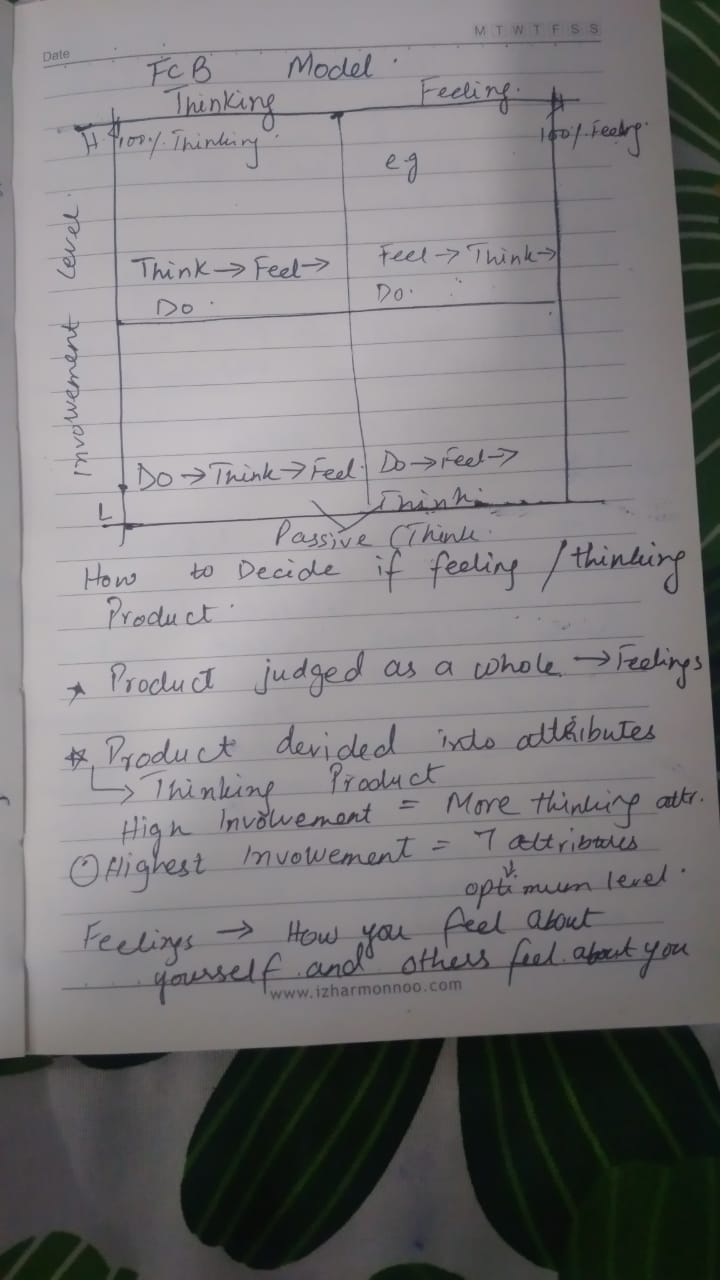 Date
M T W T F S S
FCB Model
Thinking
Feeling
H
100% Thinking
100% Feeling
eg
Involvement level
Think → Feel →
Do
Feel → Think →
Do
Do → Think → Feel
Do → Feel →
Think
L
Passive (Think
How to Decide if feeling / thinking
Product
* Product judged as a whole → Feelings
* Product devided into attributes
↳ Thinking Product
High Involvement = More thinking attr.
Highest Invowement = 7 attributes
optimum level
Feelings → How you feel about
yourself and others feel about you
www.izharmonnoo.com